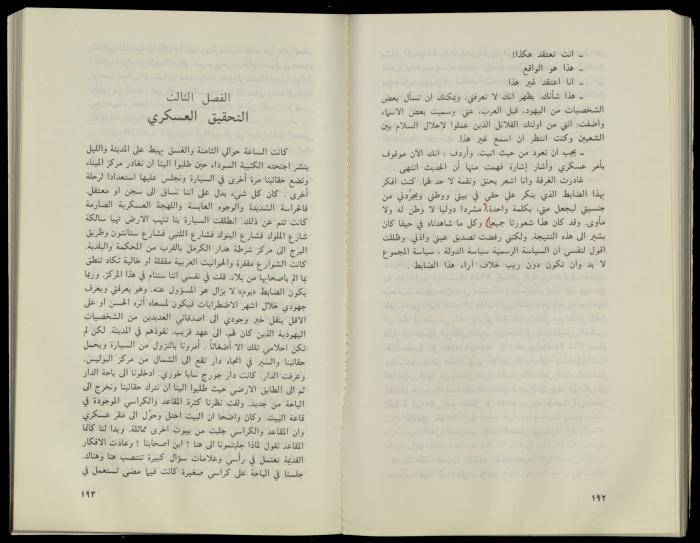 ـ انت تعتقد هكذا!
ـ هذا هو الواقع.
ـ انا اعتقد غير هذا.
ـ هذا شأنك. يظهر انك لا تعرفني. ويمكنك ان تسأل بعض
الشخصيات من اليهود، قبل العرب، عني. وسميت بعض الاسماء
واضفت: انني من اولئك القلائل الذين عملوا لإحلال السلام بين
الشعبين وكنت انتظر ان اسمع غير هذا.
ـ يجب ان تعود من حيث اتيت. وأردف: انك الآن موقوف
بأمر عسكري وأشار إشارة فهمت منها أن الحديث انتهى.
غادرت الغرفة وانا اشعر بحنق ونقمة لا حد لهما. كنت افكر
بهذا الضابط الذي ينكر علي حقي في بيتي ووطني ويجرّدني من
جنسيتي ليجعل مني، بكلمة واحدة، مشردا دوليا لا وطن له ولا
مأوى. وقد كان هذا شعورنا جميعا وكل ما شاهدناه في حيفا كان
يشير الى هذه النتيجة. ولكني رفضت تصديق عيني واذني. وظللت
اقول لنفسي ان السياسة الرسمية سياسة الدولة، سياسة المجموع
لا بد وان تكون دون ريب خلاف آراء هذا الضابط.
١٩٢
الفصل الثالث
التحقيق العسكري
كانت الساعة حوالي الثامنة والغسق يهبط على المدينة والليل
ينشر اجنحته الكئيبة السوداء حين طلبوا الينا ان نغادر مركز الميناء
ونضع حقائبنا مرة أخرى في السيارة ونجلس عليها استعدادا لرحلة
أخرى. كان كل شيء يدل على اننا نساق الى سجن او معتقل.
فالحراسة الشديدة والوجوه العابسة واللهجة العسكرية الصارمة
كانت تنم عن ذلك. انطلقت السيارة بنا تنهب الارض نهبا سالكة
شارع الملوك فشارع البنوك فشارع اللنبي فشارع ستانتون وطريق
البرج الى مركز شرطة هدار الكرمل بالقرب من المحكمة والبلدية.
كانت الشوارع مقفرة والحوانيت العربية مقفلة او خالية تكاد تنطق
بما الم باصحابها من بلاء. قلت في نفسي اننا سننام في هذا المركز. وربما
يكون الضابط «بوم» لا يزال هو المسؤول عنه. وهو يعرفني ويعرف
جهودي خلال اشهر الاضطرابات فيكون لمسعاه اثره الحسن او على
الاقل ينقل خبر وجودي الى اصدقائي العديدين من الشخصيات
اليهودية الذين كان لهم، الى عهد قريب، نفوذهم في المدينة. لكن لم
تكن احلامي تلك الا أضغاثاً. أمرونا بالنزول من السيارة وبحمل
حقائبنا والسير في اتجاه دار تقع الى الشمال من مركز البوليس.
وعرفت الدار. كانت دار جورج سابا خوري. ادخلونا الى باحة الدار
ثم الى الطابق الارضي حيث طلبوا الينا ان نترك حقائبنا ونخرج الى
الباحة من جديد. ولفت نظرنا كثرة المقاعد والكراسي الموجودة في
قاعة البيت. وكان واضحا ان البيت احتل وحوّل الى مقر عسكري
وان المقاعد والكراسي جلبت من بيوت اخرى مماثلة. وبدا لنا كأنما
المقاعد تقول لماذا جلبتمونا الى هنا؟ اين اصحابنا؟ وعادت الافكار
القديمة تعتمل في رأسي وعلامات سؤال كبيرة تنتصب هنا وهناك.
جلسنا في الباحة على كراسي صغيرة كانت فيما مضى تستعمل في
١٩٣